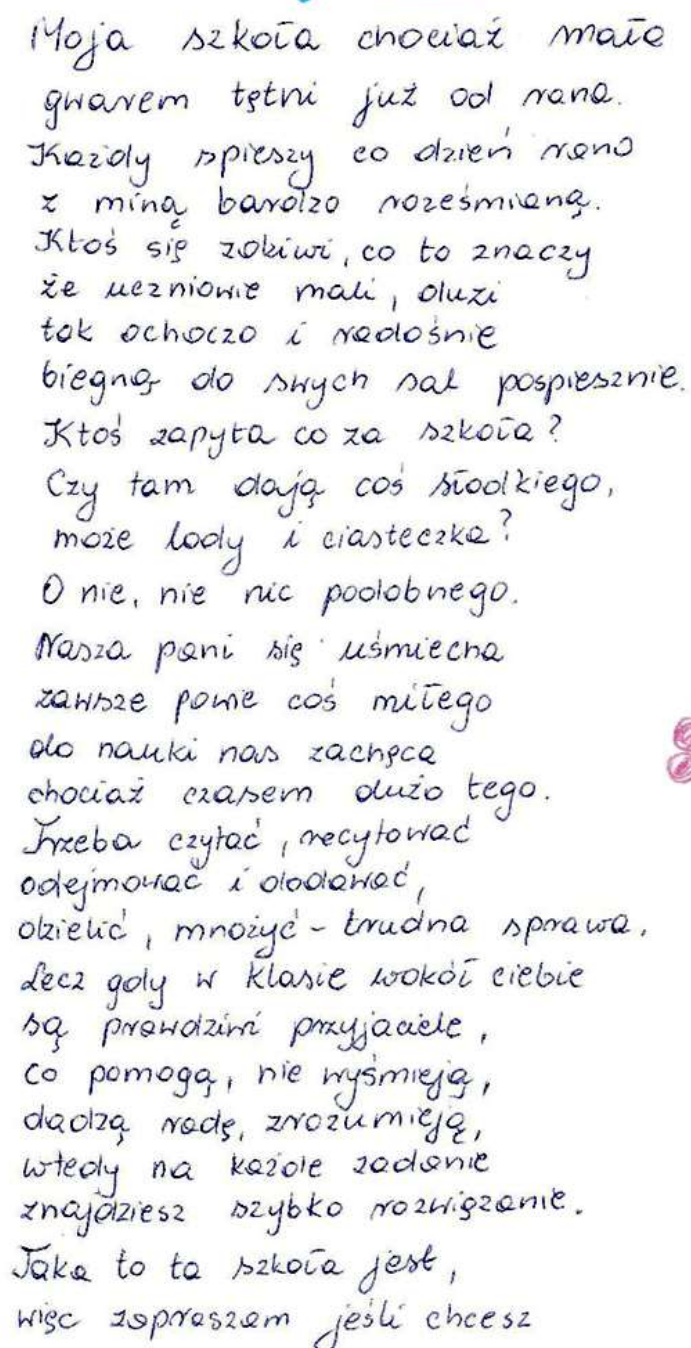 Moja szkoła chociaż mała
gwarem tętni już od rana.
Każdy spieszy co dzień rano
z miną bardzo roześmianą.
Ktoś się zdziwi, co to znaczy
że uczniowie mali, duzi
tak ochoczo i radośnie
biegną do swych sal pospiesznie.
Ktoś zapyta co za szkoła?
Czy tam dają coś słodkiego,
może lody i ciasteczka?
O nie, nie nic podobnego.
Nasza pani się uśmiecha
zawsze powie coś miłego
do nauki nas zachęca
chociaż czasem dużo tego.
Trzeba czytać, recytować
odejmować i dodawać,
dzielić, mnożyć - trudna sprawa.
Lecz gdy w klasie wokół ciebie
są prawdziwi przyjaciele,
co pomogą, nie wyśmieją,
dadzą radę, zrozumieją,
wtedy na każde zadanie
znajdziesz szybko rozwiązanie.
Taka to ta szkoła jest,
więc zapraszam jeśli chcesz